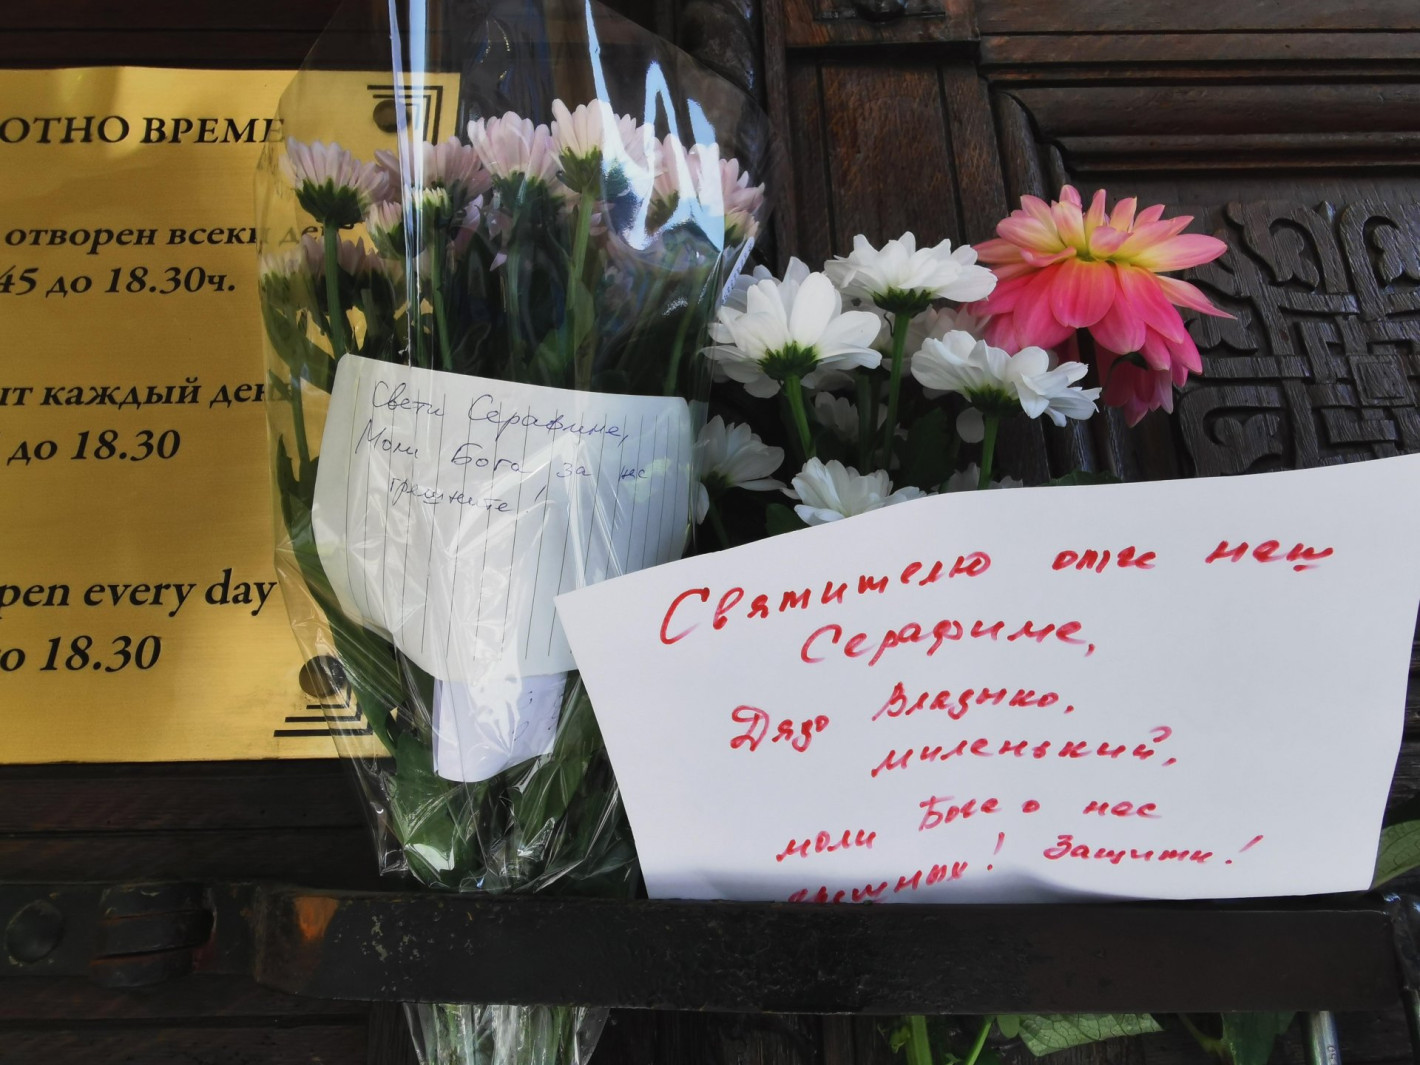 ОТНО ВРЕМЕ
отворен всеки ден
45 до 18.30ч.
ыт каждый день
до 18.30
pen every day
to 18.30
Свети Серафиме,
Моли Бога за нас
грешните!
Святителю отче наш
Серафиме,
Дядо Владыко,
миленький,
моли Бога о нас
грешных! Защити!